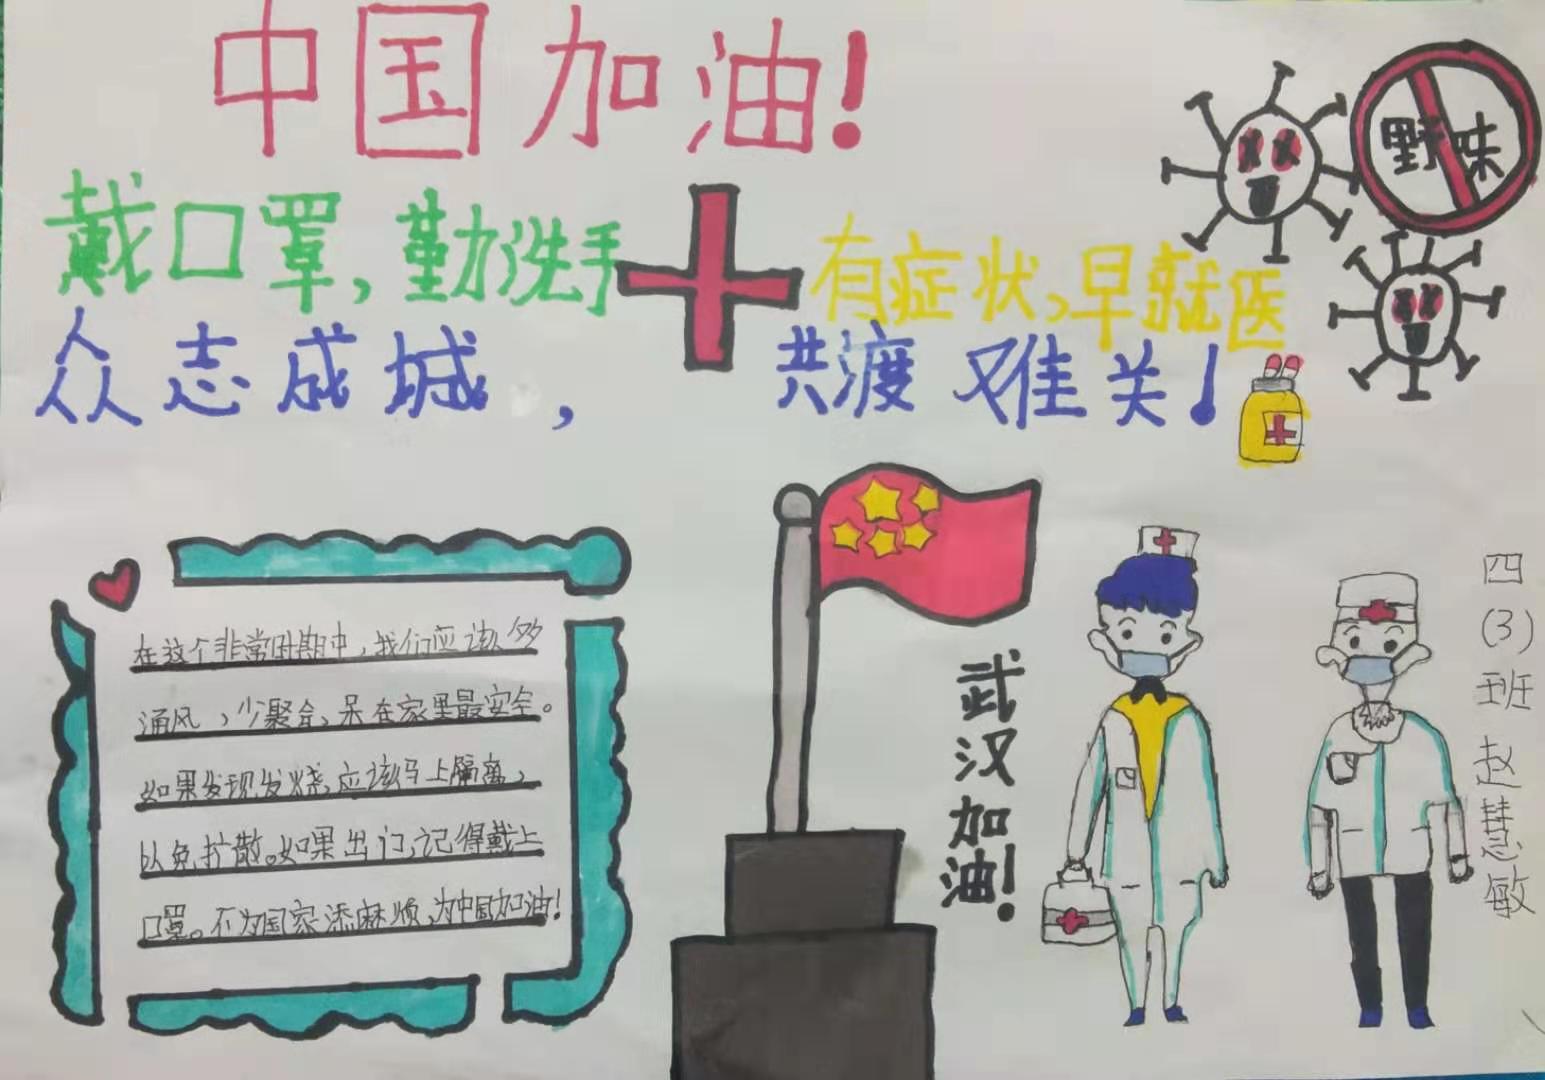 中国加油!
野味
戴口罩,勤洗手
有症状,早就医
众志成城,
共渡难关!
在这个非常时期中,我们应该多
通风,少聚会,呆在家里最安全。
如果发现发烧,应该马上隔离,
以免扩散。如果出门,记得戴上
口罩。不为国家添麻烦,为中国加油!
武汉加油!
四(3)班赵慧敏